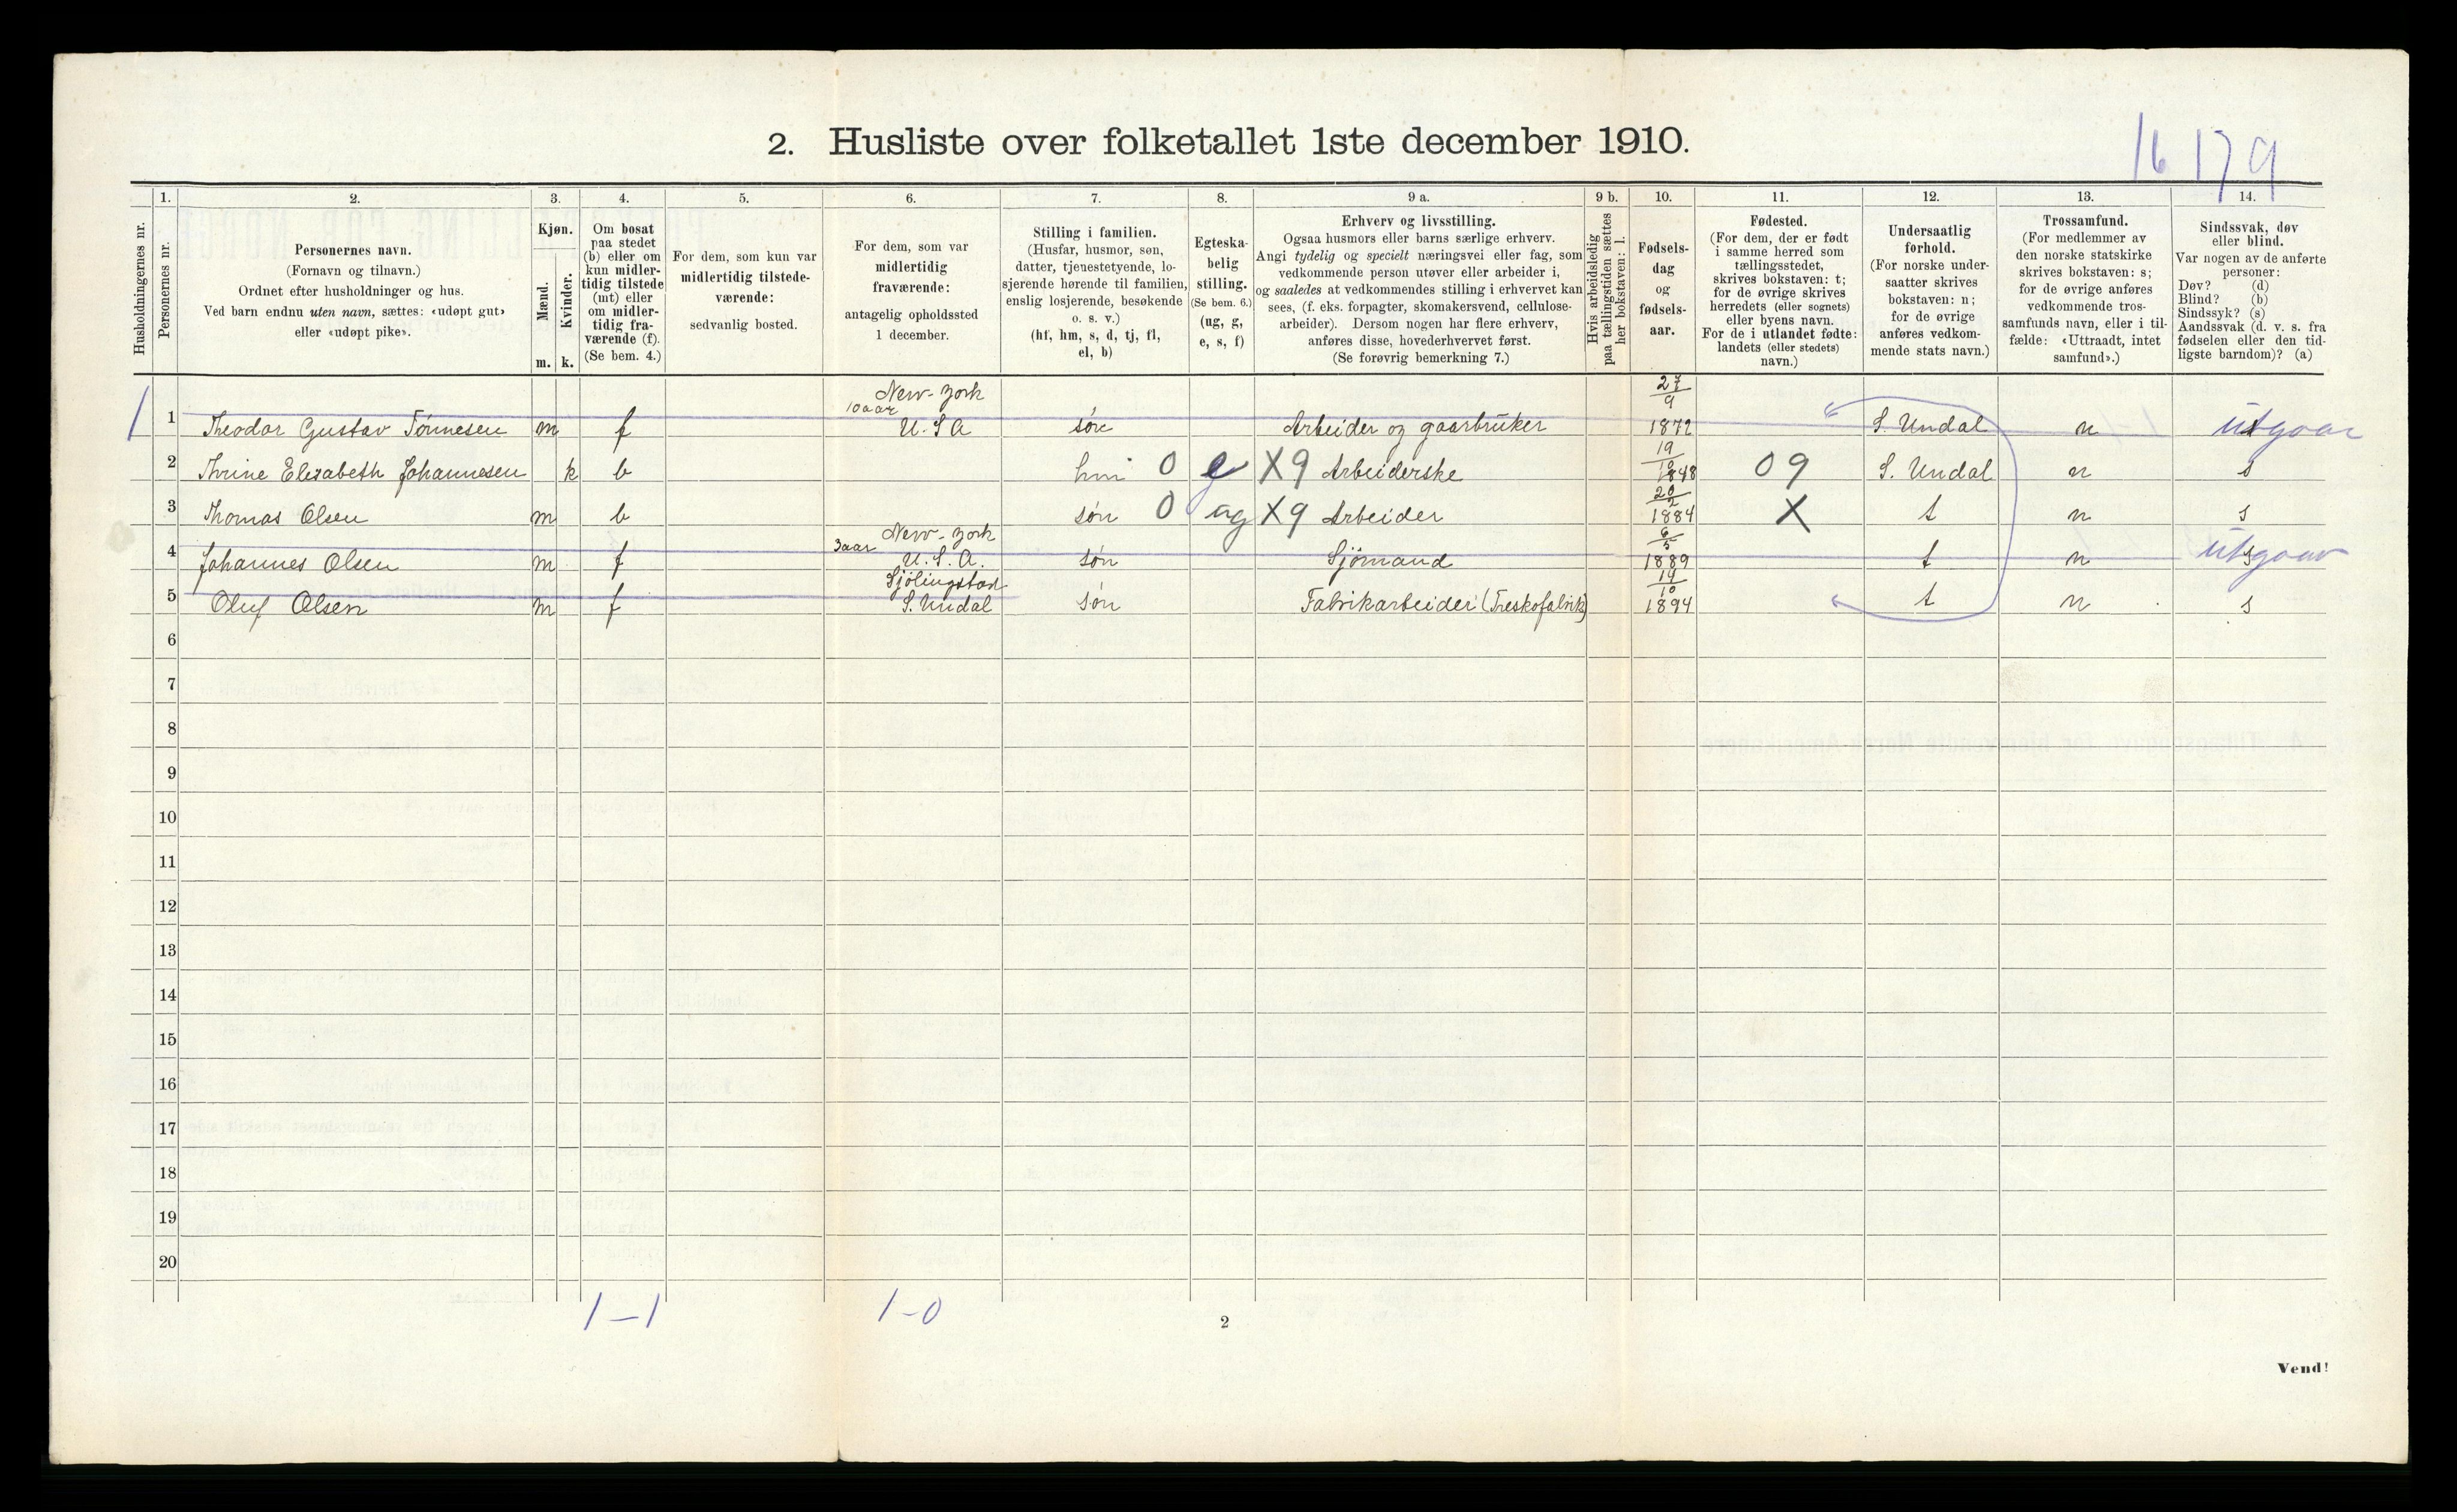 2. Husliste over folketallet 1ste december 1910.
16 179
Husholdningernes nr.
1.
Personernes nr.
2.
Personernes navn.
(Fornavn og tilnavn.)
Ordnet efter husholdninger og hus.
Ved barn endnu uten navn, sættes: «udøpt gut»
eller «udøpt pike».
3.
Kjøn.
Mænd.
Kvinder.
m. k.
4.
Om bosat
paa stedet
(b) eller om
kun midler-
tidig tilstede
(mt) eller
om midler-
tidig fra-
værende (f).
(Se bem. 4.)
5.
For dem, som kun var
midlertidig tilstede-
værende:
sedvanlig bosted.
6.
For dem, som var
midlertidig
fraværende:
antagelig opholdssted
1 december.
7.
Stilling i familien.
(Husfar, husmor, søn,
datter, tjenestetyende, lo-
sjerende hørende til familien,
enslig losjerende, besøkende
o. s. v.)
(hf, hm, s, d, tj, fl,
el, b)
8.
Egteska-
belig
stilling.
(Se bem. 6.)
(ug, g,
e, s, f)
9 a.
Erhverv og livsstilling.
Ogsaa husmors eller barns særlige erhverv.
Angi tydelig og specielt næringsvei eller fag, som
vedkommende person utøver eller arbeider i,
og saaledes at vedkommendes stilling i erhvervet kan
sees, (f. eks. forpagter, skomakersvend, cellulose-
arbeider). Dersom nogen har flere erhverv,
anføres disse, hovederhvervet først.
(Se forøvrig bemerkning 7.)
9 b.
Hvis arbeidsledig
paa tællingstiden sættes
her bokstaven: l.
10.
Fødsels-
dag
og
fødsels-
aar.
11.
Fødested.
(For dem, der er født
i samme herred som
tællingsstedet,
skrives bokstaven: t;
for de øvrige skrives
herredets (eller sognets)
eller byens navn.
For de i utlandet fødte:
landets (eller stedets)
navn.)
12.
Undersaatlig
forhold.
(For norske under-
saatter skrives
bokstaven: n;
for de øvrige
anføres vedkom-
mende stats navn.)
13.
Trossamfund.
(For medlemmer av
den norske statskirke
skrives bokstaven: s;
for de øvrige anføres
vedkommende tros-
samfunds navn, eller i til-
fælde: «Uttraadt, intet
samfund».)
14.
Sindssvak, døv
eller blind.
Var nogen av de anførte
personer:
Døv? (d)
Blind? (b)
Sindssyk? (s)
Aandssvak (d. v. s. fra
fødselen eller den tid-
ligste barndom)? (a)
New-York 27/9
1 1 Theodor Gustav Tönnesen m f 10 aar U.S.A søn Arbeider og gaarbruker 1872 S. Undal n utgaar
2 Thrine Elisabeth Johannesen k b hm 0 e X9 Arbeiderske 19/10 1848 09 S. Undal n s
3 Thomas Olsen m b søn 0 ug X9 Arbeider 20/2 1884 X t n s
New-York
4 Johannes Olsen m f 3 aar U.S.A. søn Sjömand 6/5 1889 t n s utgaar
Sjölingstad
5 Oluf Olsen m f S. Undal søn Fabrikarbeider (Treskofabrik) 14/10 1894 t n s
6
7
8
9
10
11
12
13
14
15
16
17
18
19
20
1-1 1-0
2
Vend!